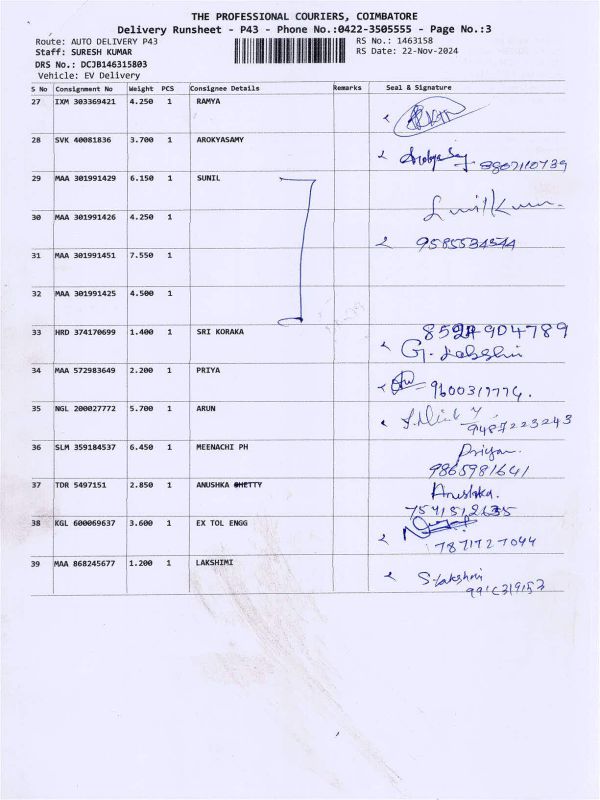 THE PROFESSIONAL COURIERS, COIMBATORE
Delivery Runsheet - P43 - Phone No.:0422-3505555 - Page No.:3
Route: AUTO DELIVERY P43
RS No.: 1463158
Staff: SURESH KUMAR
RS Date: 22-Nov-2024
DRS No.: DCJB146315803
Vehicle: EV Delivery
S No Consignment No Weight PCS Consignee Details Remarks Seal & Signature
27 IXM 303369421 4.250 1 RAMYA
28 SVK 40081836 3.700 1 AROKYASAMY
Arokyasamy 8807110739
29 MAA 301991429 6.150 1 SUNIL
Sunil Kumar
30 MAA 301991426 4.250 1
9585534544
31 MAA 301991451 7.550 1
32 MAA 301991425 4.500 1
33 HRD 374170699 1.400 1 SRI KORAKA
904789
G.
34 MAA 572983649 2.200 1 PRIYA
9600317774.
35 NGL 200027772 5.700 1 ARUN
9487223243
36 SLM 359184537 6.450 1 MEENACHI PH
Priya
9865981641
37 TDR 5497151 2.850 1 ANUSHKA SHETTY
Anushka.
7541512635
38 KGL 600069637 3.600 1 EX TOL ENGG
7871727044
39 MAA 868245677 1.200 1 LAKSHIMI
S. Lakshmi